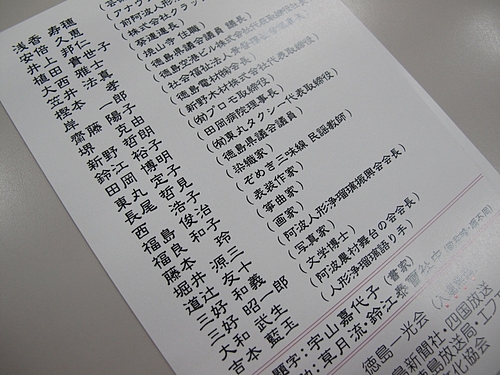 浅香 寿穂
安倍 久恵 (アナウ
井上 邦仁 (前阿波人形
植田 貴世子 (株式会社クラッシ
大西 雅士 (葵連連長)
笠井 法真 (境山寺 住職)
樫本 孝 (徳島県議会議員 議長)
岸 一郎 (徳島空港ビル株式会社代表取締役社長
齋藤 陽子 (社会福祉法人
堺 克由 (徳島電材㈱会長)
新野 哲朗 (新野木材株式会社代表取締役)
鈴江 裕子 (㈲プロモ取締役)
田岡 博明 (田岡病院理事長)
東丸 定子 (㈲東丸タクシー代表取締役)
長尾 哲見 (徳島県議会議員)
西 浩子 (染織家)
福島 俊治 (ぞめき三味線 民謡教師)
福良 和子 (表装作家)
藤本 玲 (箏曲家)
堀井 源三 (画家)
道辻 友十 (阿波人形浄瑠璃振興会会長)
三好 和義 (写真家)
三好 昭一郎 (文学博士)
大和 武生 (阿波農村舞台の会会長)
吉本 藍玉 (人形浄瑠璃語り手)
題字:宇山嘉代子(書家)
:草月流・鈴江泰
徳島一光会
島新聞社・四国放送
島放送局・エフエ
化協会